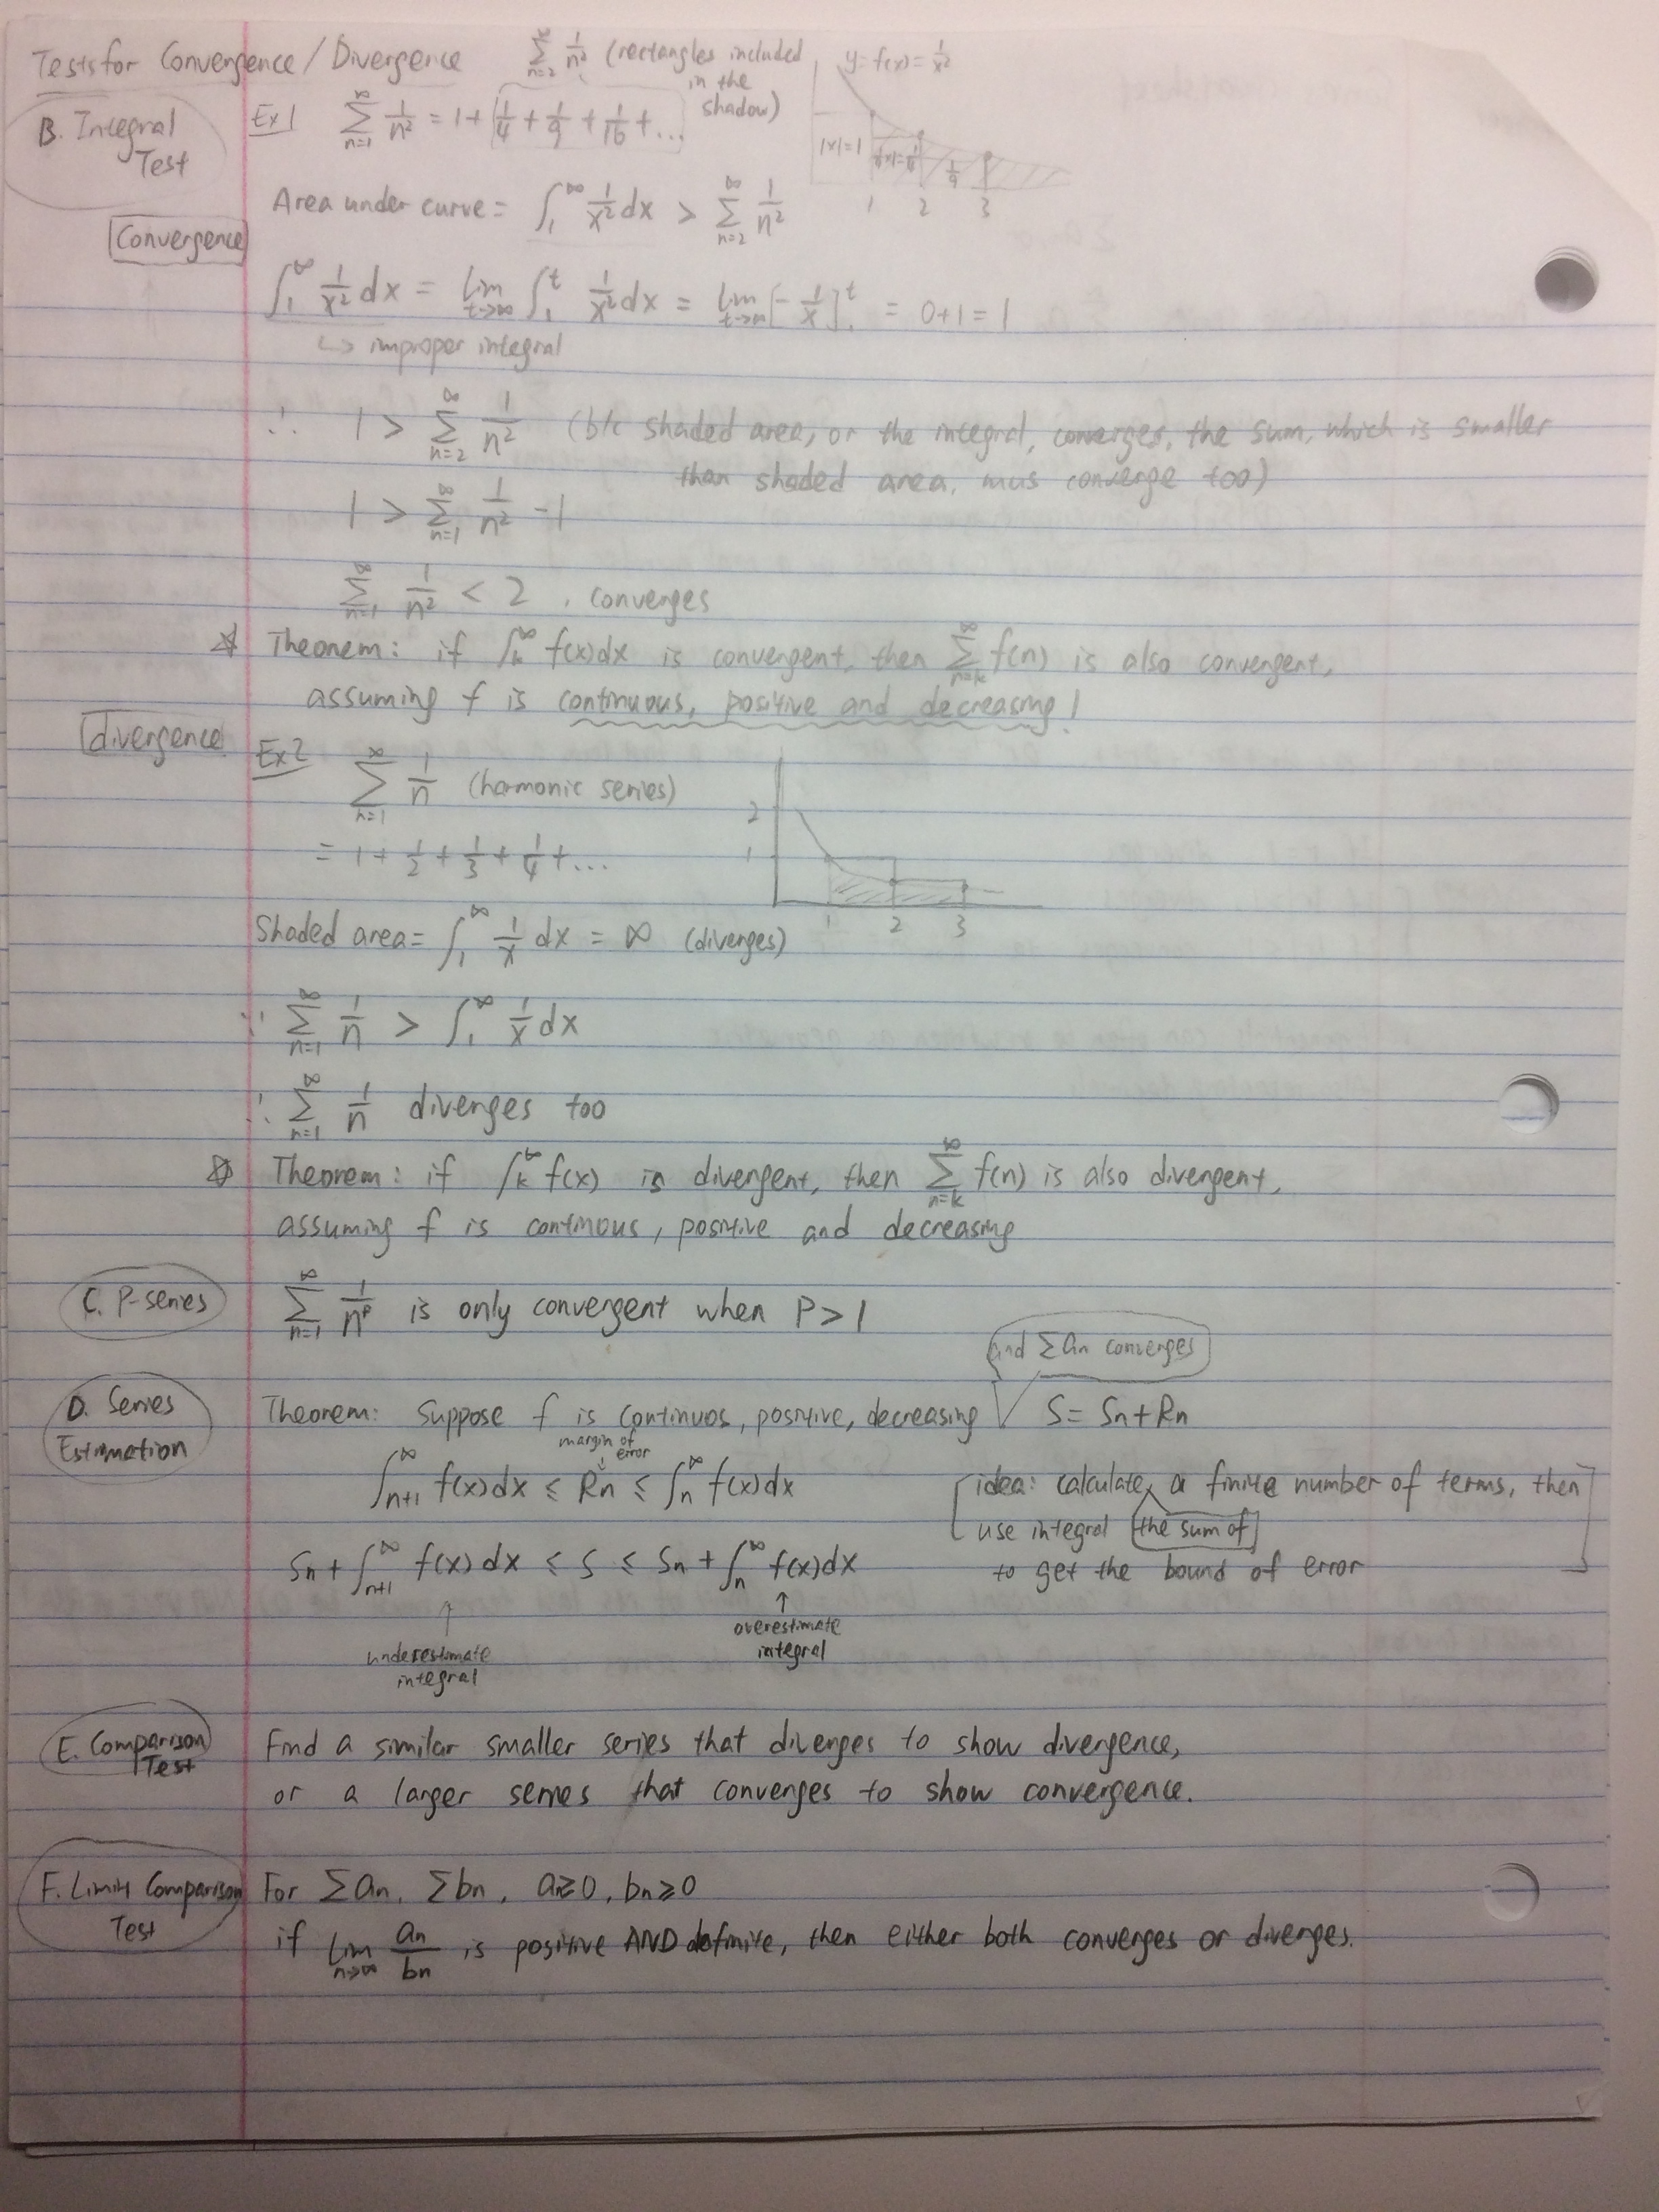 Tests for Convergence / Divergence
∞Σn=2 1/n² (rectangles included in the shadow)
y=f(x)=1/x²
B. Integral Test
Ex 1 ∞Σn=1 1/n² = 1 + 1/4 + 1/9 + 1/16 + ...
1×1=1
1/9
1 2 3
Area under curve = ∫₁^∞ 1/x² dx > ∞Σn=2 1/n²
Convergence
∫₁^∞ 1/x² dx = lim t→∞ ∫₁^t 1/x² dx = lim t→∞ [-1/x]₁^t = 0+1=1
↳ improper integral
∴ 1 > ∞Σn=2 1/n² (b/c shaded area, or the integral, converges, the sum, which is smaller
than shaded area, mus converge too)
1 > ∞Σn=1 1/n² -1
∞Σn=1 1/n² < 2 , converges
☆ Theorem: if ∫k^∞ f(x)dx is convergent, then ∞Σn=k f(n) is also convergent,
assuming f is continuous, positive and decreasing!
divergence
Ex 2 ∞Σn=1 1/n (harmonic series)
= 1 + 1/2 + 1/3 + 1/4 + ...
2
1
1 2 3
Shaded area = ∫₁^∞ 1/x dx = ∞ (diverges)
∵ ∞Σn=1 1/n > ∫₁^∞ 1/x dx
∴ ∞Σn=1 1/n diverges too
☆ Theorem: if ∫k^∞ f(x) is divergent, then ∞Σn=k f(n) is also divergent,
assuming f is continous, positive and decreasing
C. P-series
∞Σn=1 1/n^p is only convergent when P>1
and Σan converges
D. Series Estimation
Theorem: Suppose f is continuos, positive, decreasing √ S = Sn+Rn
margin of error
∫n+1^∞ f(x)dx ≤ Rn ≤ ∫n^∞ f(x)dx
[idea: calculate a finite number of terms, then
use integral the sum of
to get the bound of error]
Sn + ∫n+1^∞ f(x)dx ≤ S ≤ Sn + ∫n^∞ f(x)dx
↑ underestimate integral
↑ overestimate integral
E. Comparison Test
Find a similar smaller series that diverges to show divergence,
or a larger series that converges to show convergence.
F. Limit Comparison Test
For Σan, Σbn, an≥0, bn≥0
if lim n→∞ an/bn is positive AND definite, then either both converges or diverges.